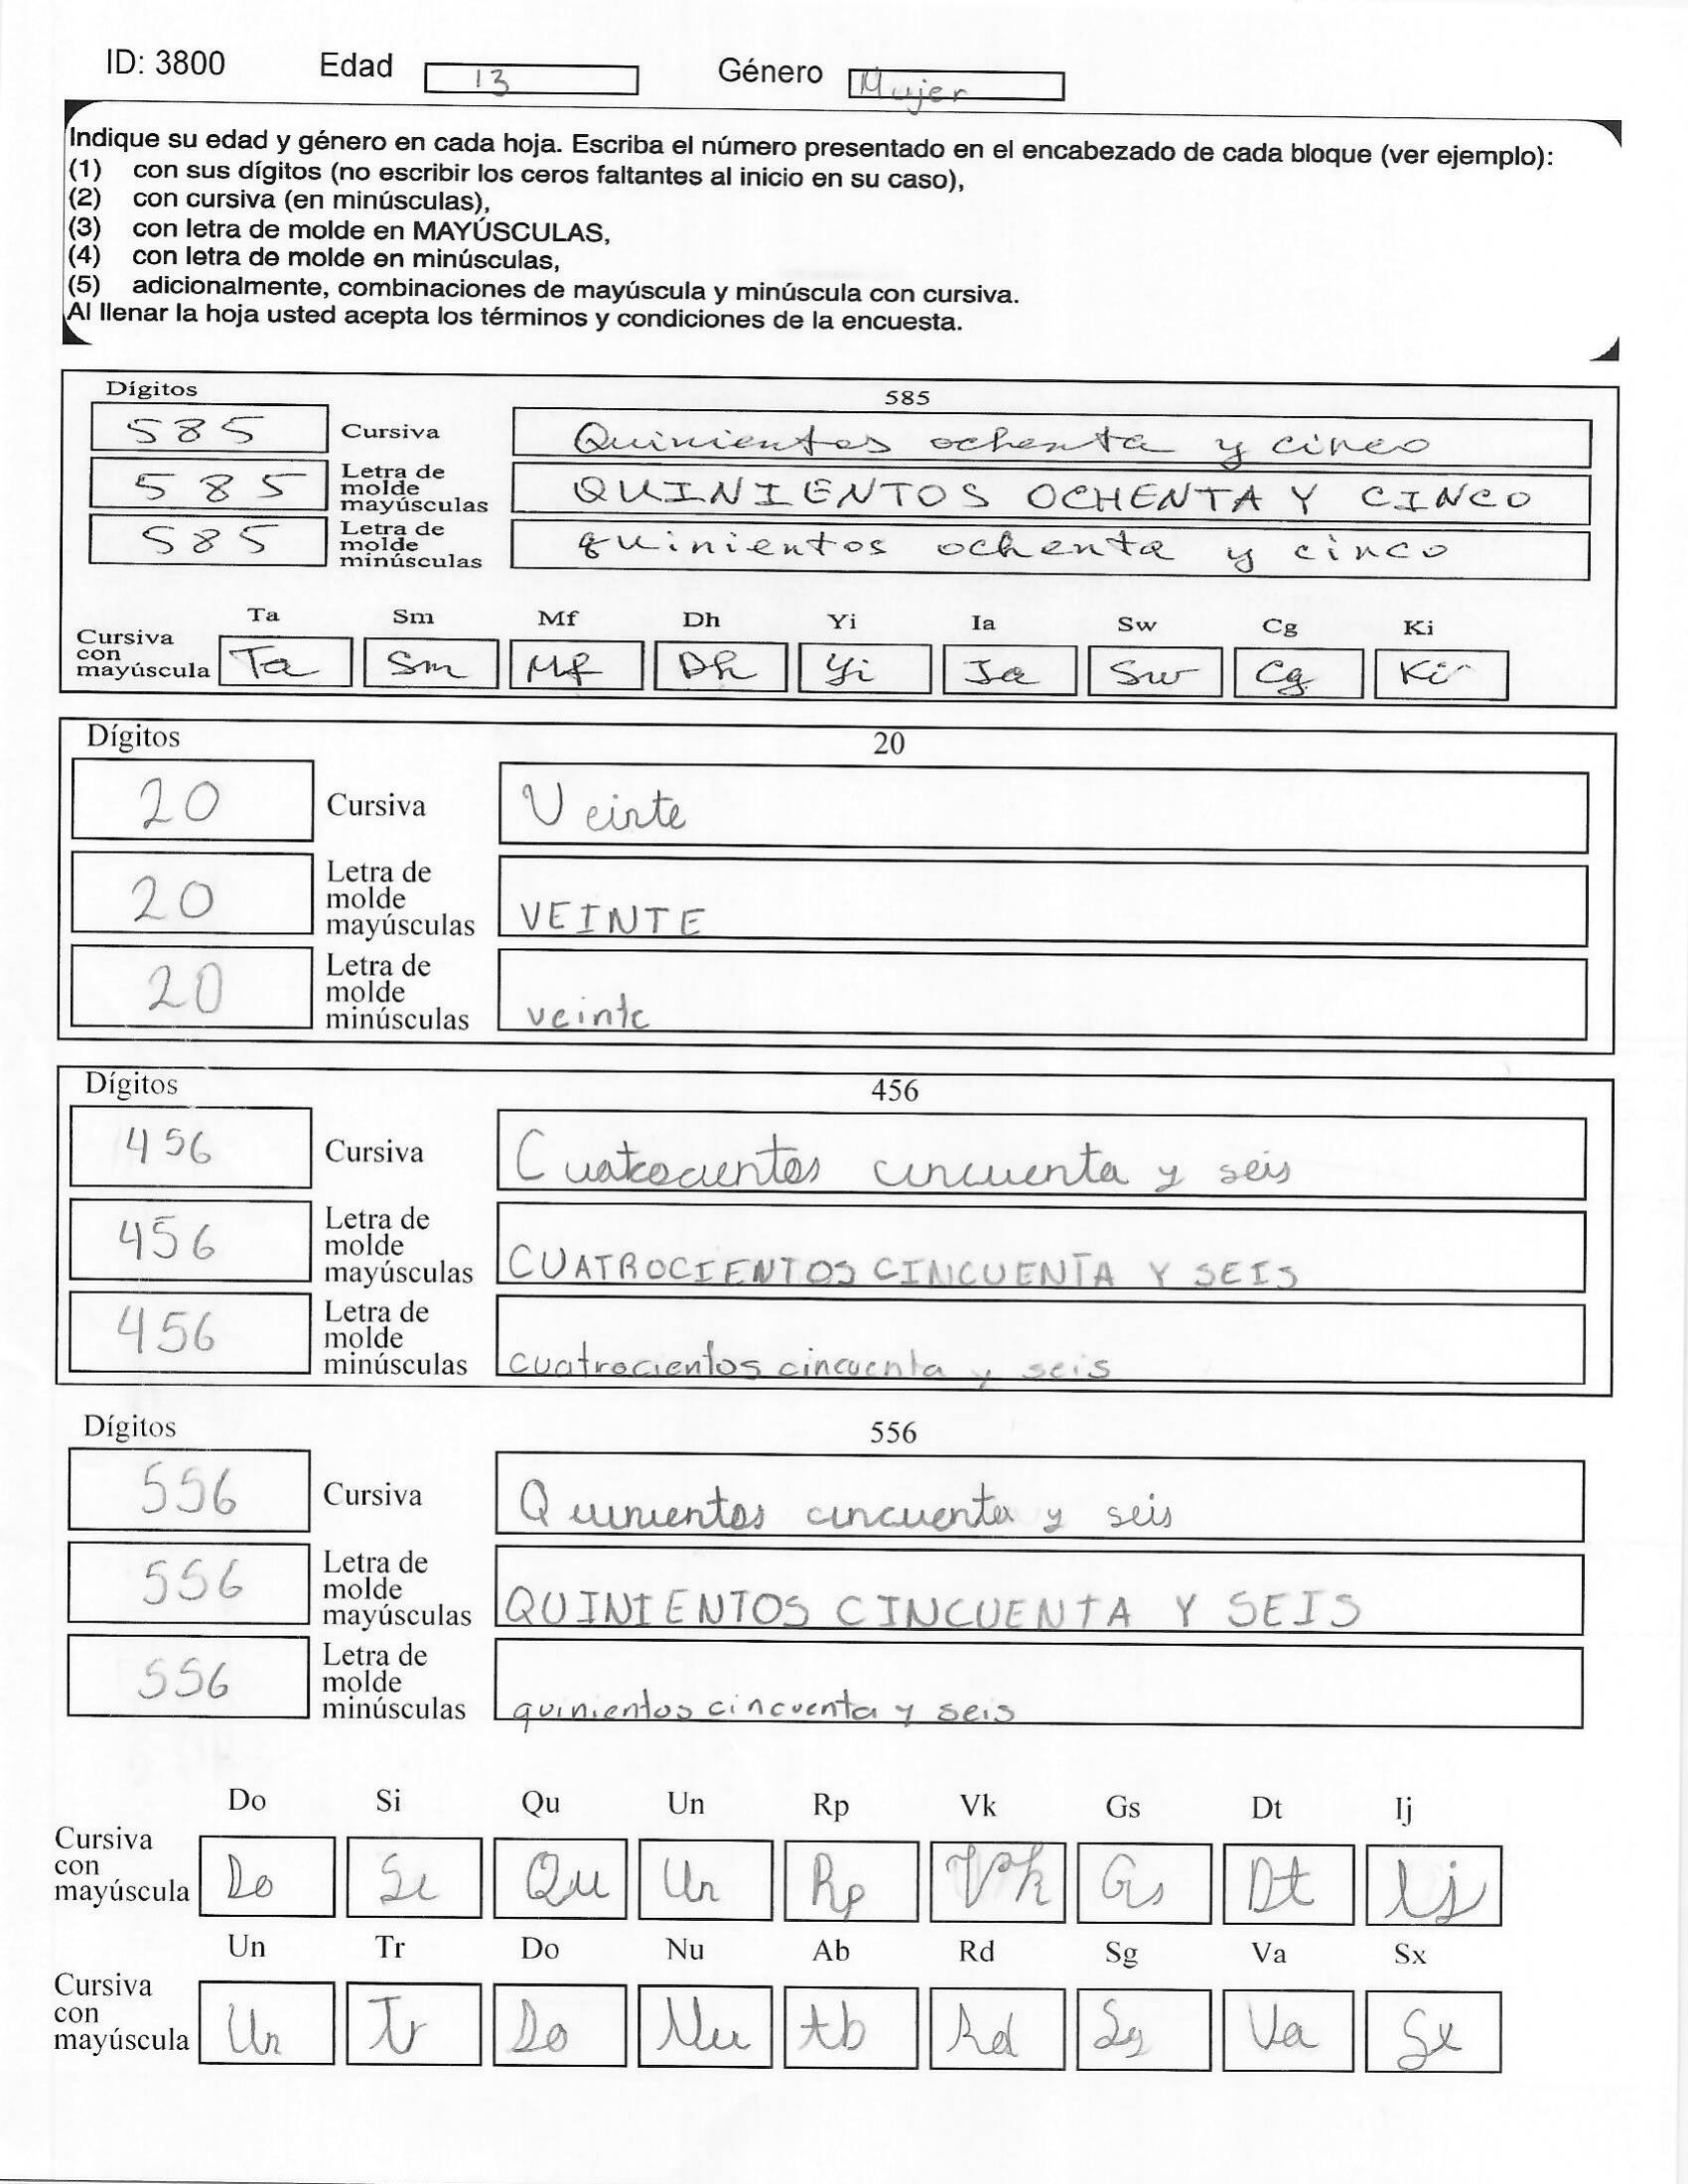 ID: 3800 Edad 13 Género Mujer
Indique su edad y género en cada hoja. Escriba el número presentado en el encabezado de cada bloque (ver ejemplo):
(1) con sus dígitos (no escribir los ceros faltantes al inicio en su caso),
(2) con cursiva (en minúsculas),
(3) con letra de molde en MAYÚSCULAS,
(4) con letra de molde en minúsculas,
(5) adicionalmente, combinaciones de mayúscula y minúscula con cursiva.
Al llenar la hoja usted acepta los términos y condiciones de la encuesta.
Dígitos 585
585 Cursiva Quinientos ochenta y cinco
585 Letra de molde mayúsculas QUINIENTOS OCHENTA Y CINCO
585 Letra de molde minúsculas quinientos ochenta y cinco
Ta Sm Mf Dh Yi Ia Sw Cg Ki
Cursiva con mayúscula Ta Sm Mf Dh Yi Ia Sw Cg Ki
Dígitos 20
20 Cursiva Veinte
20 Letra de molde mayúsculas VEINTE
20 Letra de molde minúsculas veinte
Dígitos 456
456 Cursiva Cuatrocientos cincuenta y seis
456 Letra de molde mayúsculas CUATROCIENTOS CINCUENTA Y SEIS
456 Letra de molde minúsculas cuatrocientos cincuenta y seis
Dígitos 556
556 Cursiva Quinientos cincuenta y seis
556 Letra de molde mayúsculas QUINIENTOS CINCUENTA Y SEIS
556 Letra de molde minúsculas quinientos cincuenta y seis
Do Si Qu Un Rp Vk Gs Dt Ij
Cursiva con mayúscula Do Si Qu Un Rp Vk Gs Dt Ij
Un Tr Do Nu Ab Rd Sg Va Sx
Cursiva con mayúscula Un Tr Do Nu Ab Rd Sg Va Sx